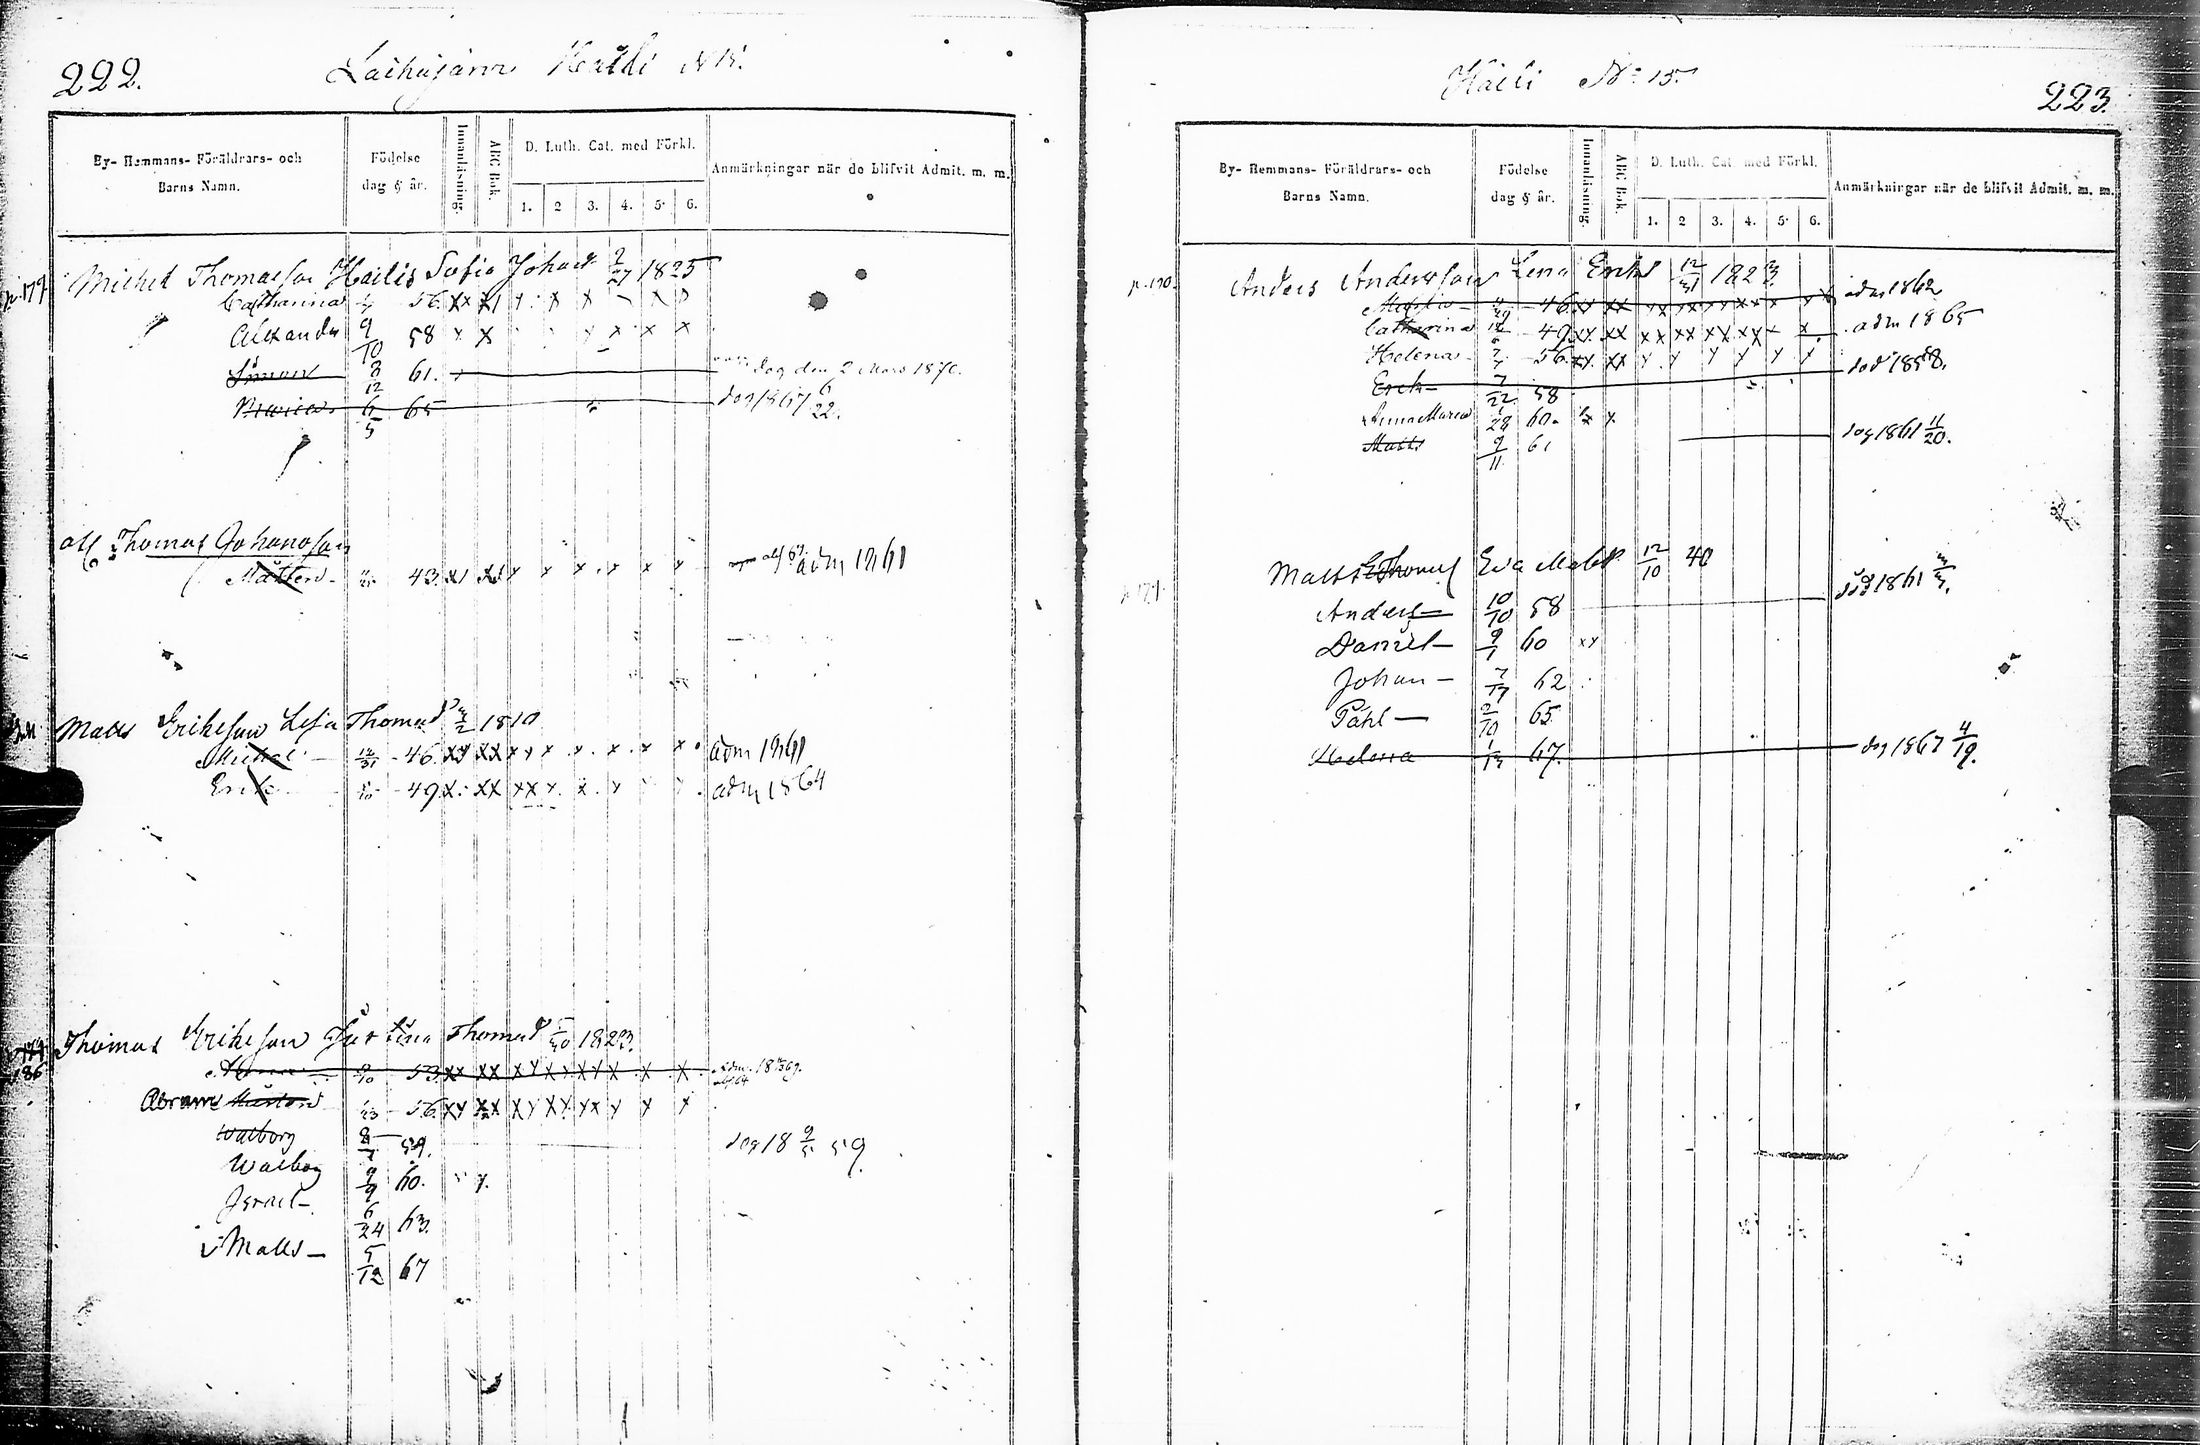 222.
Laihajärvi Haili N 15.
By- Hemmans- Föräldrars- och Barns Namn.
Födelse dag & år.
Innanläsning.
ABC Bok.
D. Luth. Cat. med Förkl.
1. 2 3. 4. 5. 6.
Anmärkningar när de blifvit Admit. m. m.
p. 177 Michel Thomasson Hailis Sofia Johans 2/27 1825
Catharina 56. xx x x x x x
Alexander 9/10 58 x x x x x x
Simon 8/12 61. dog den 2 Mars 1870.
Maria 6/5 65 dog 1867 6/22.
afl. Thomas Johansson
43. x x x x x x adm 1861
Matts Eriksson Lisa Thomasd 1810
Michel 12/31 46. xx xx x x x x x x x adm 1861
Erik 49 x. xx xx x. x. x adm 1864
179
186
Thomas Eriksson Justina Thomasd 1823.
53 xx xx xx xx xx x x x adm. 1869.
Abram 56. xx xx xx xx xx x x x
Walborg 59. dog 18 9/5 59
Walborg 9/9 60. x.
Israel 6/24 63.
Matts 5/12 67
Haili No 15.
223.
By- Hemmans- Föräldrars- och Barns Namn.
Födelse dag & år.
Innanläsning.
ABC Bok.
D. Luth. Cat. med Förkl.
1. 2 3. 4. 5. 6.
Anmärkningar när de blifvit Admit. m. m.
p. 170. Anders Andersson Lena Eriks 12/31 1823
46. xx xx xx xx xx xx x x x adm 1862
Catharina 49. xx. xx xx xx xx xx x x adm 1865
Helena 7/7 56 xx. xx x x x x x x
Erik 7/22 58 död 1858.
Anna Maria 1/28 60. x x
Matts 9/11 61 dog 1861 11/20.
Matts Thomas Eva Matts 12/10 40
Anders 10/10 58 dög 1861
Daniel 9/1 60 xx
Johan 7/17 62
Påhl 2/10 65.
Helena 1/13 67. dog 1867 4/19.